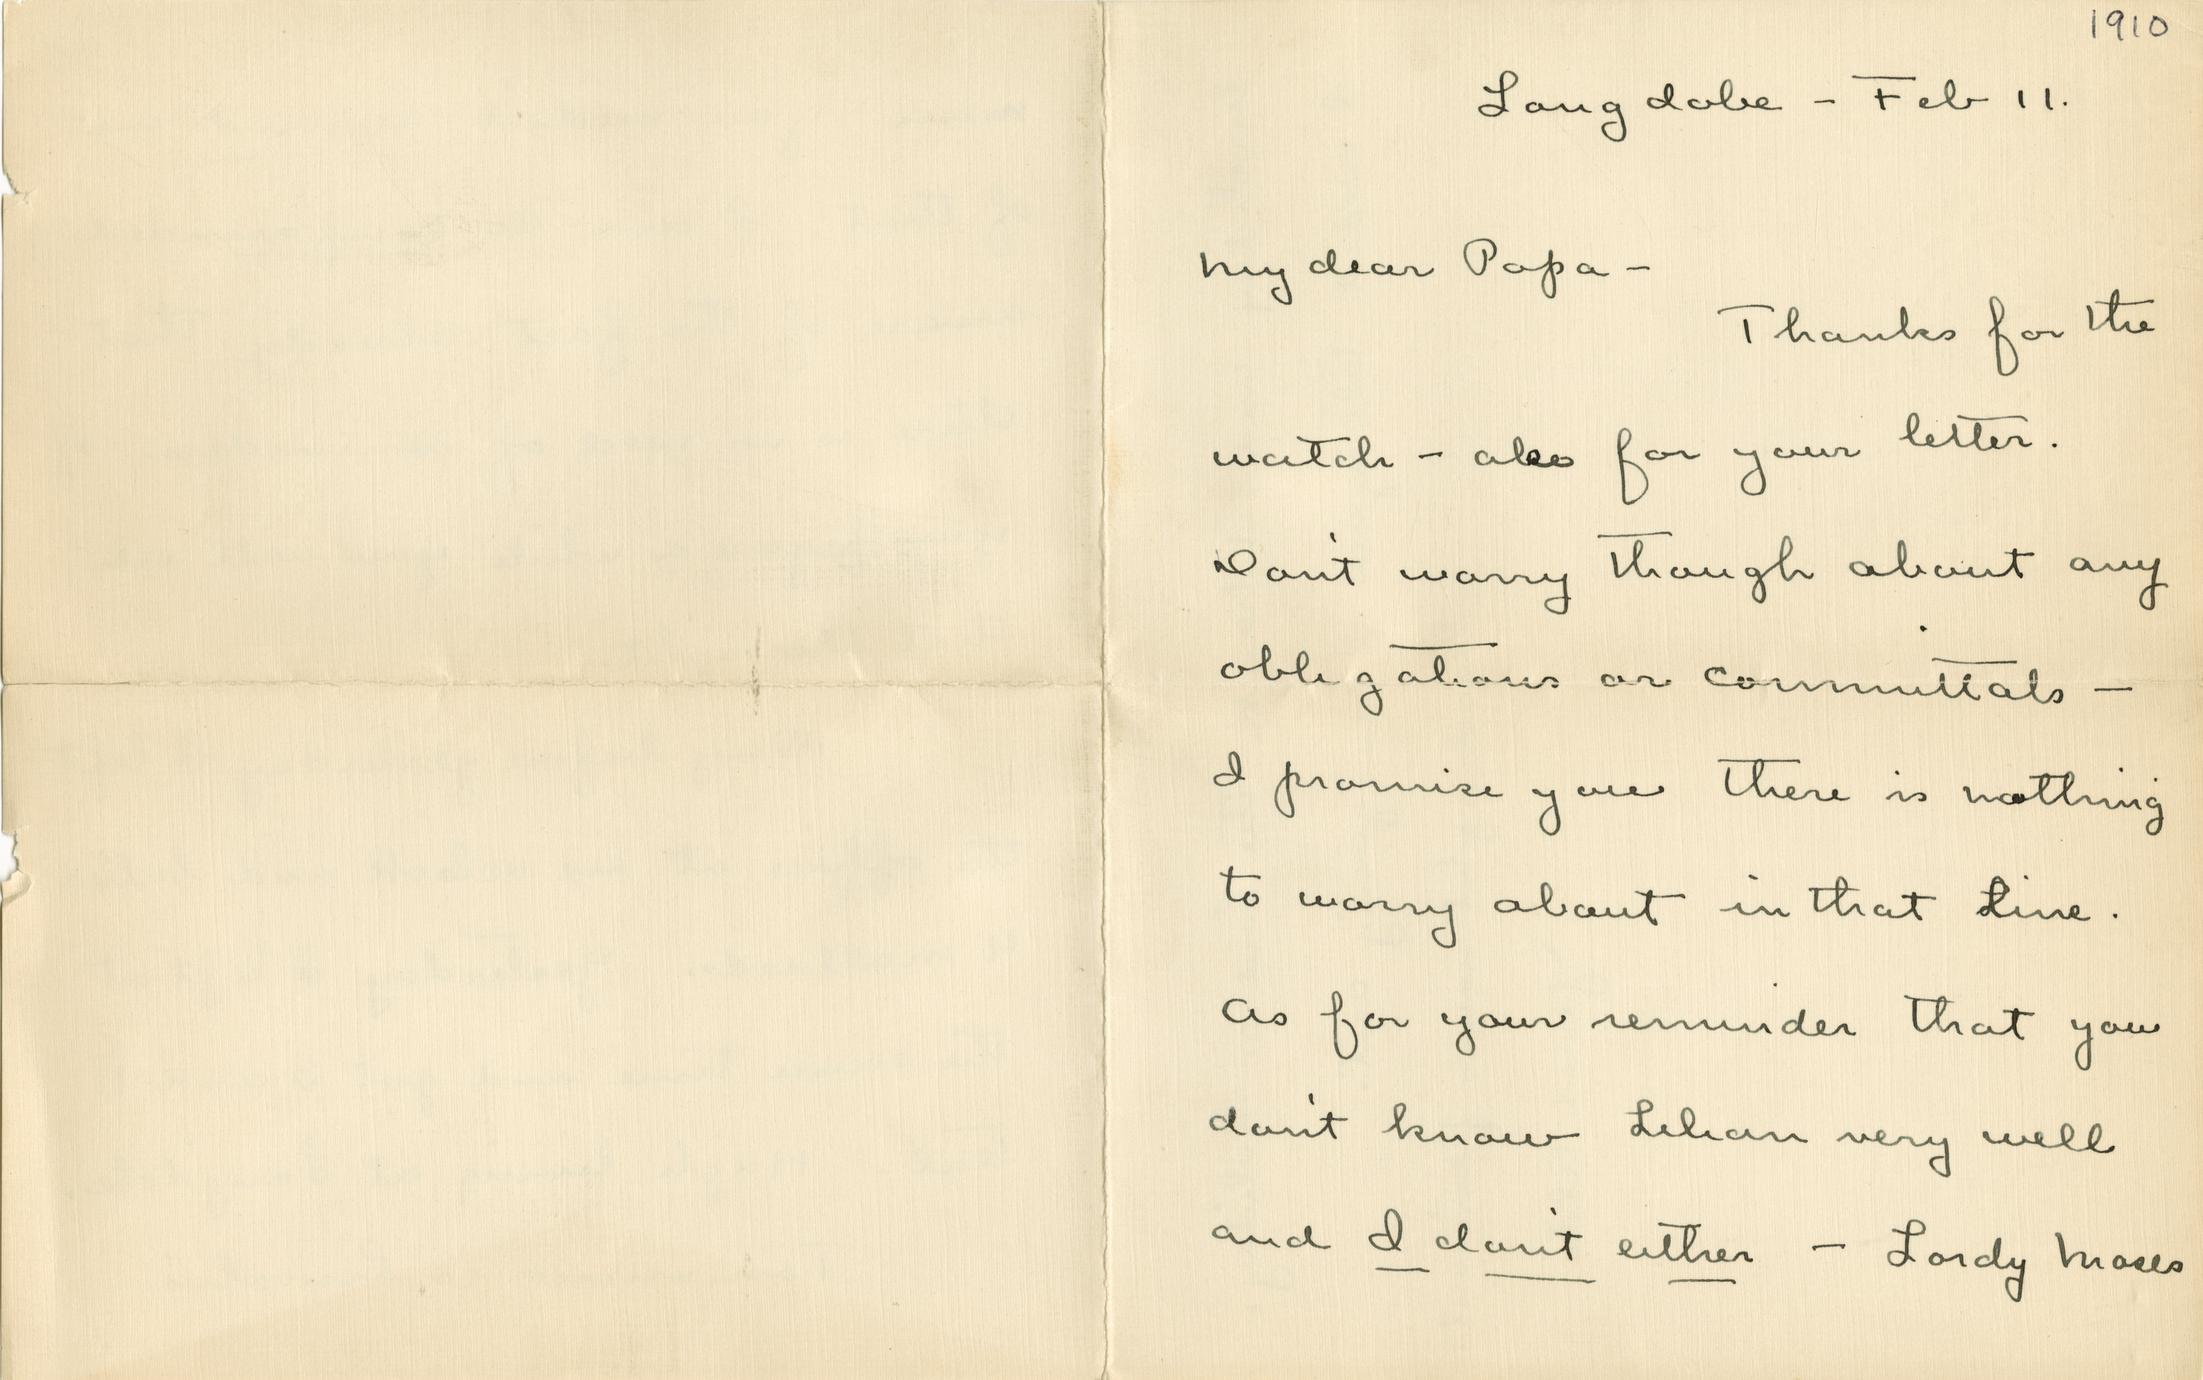 1910
Langdale - Feb 11.
My dear Papa -
Thanks for the
watch - also for your letter.
Don't worry though about any
obligations or committals -
I promise you there is nothing
to worry about in that line.
As for your reminder that you
don't know Lilian very well
and I don't either - Lordy Moses